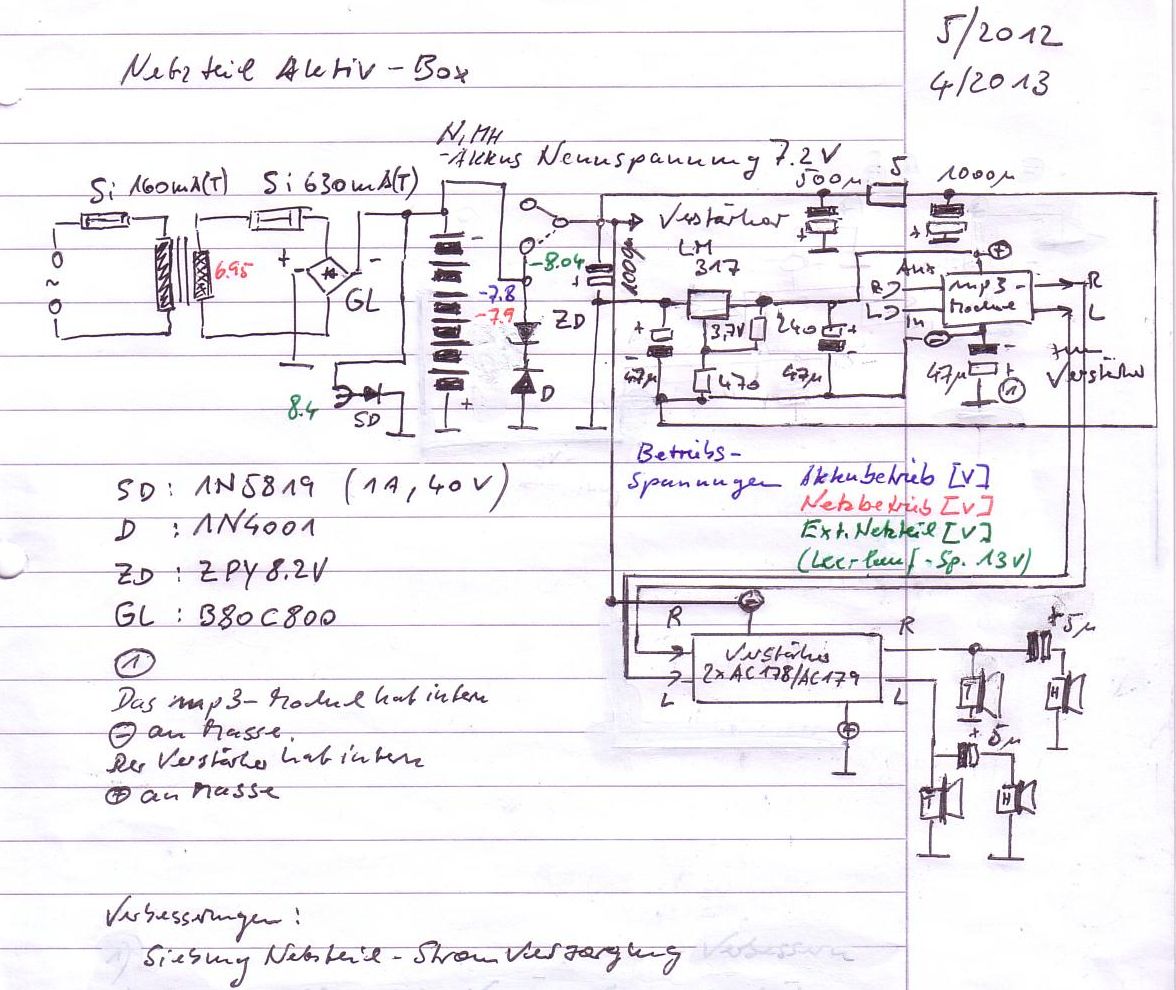 5/2012
4/2013
Netzteil Aktiv-Box
NiMH
-Akkus Nennspannung 7.2V
Si 160mA(T)
Si 630mA(T)
500µ
5
1000µ
+
-
-
Verstärker
LM
317
+
+
+
Aux
R
L
In
mp3-
Module
R
L
~
6.95
GL
-8.04
1000µ
+
-7.8
-7.9
ZD
3,7V
240
+
-
47µ
470
+
-
47µ
-
-
+
47µ
1
zum
Verstärker
8.4
SD
D
+
Betriebs-
Spannungen
Akkubetrieb [V]
Netzbetrieb [V]
Ext. Netzteil [V]
(Leerlauf-Sp. 13V)
SD: 1N5819 (1A, 40V)
D : 1N4001
ZD : ZPY8.2V
GL : B80C800
-
R
L
Verstärker
2xAC178/AC179
R
L
+
+ 5µ
T
H
+ 5µ
T
H
1
Das mp3-Modul hat intern
- an Masse.
Der Verstärker hat intern
+ an Masse
Verbesserungen:
1) Siebung Netzteil-Stromversorgung verbessern